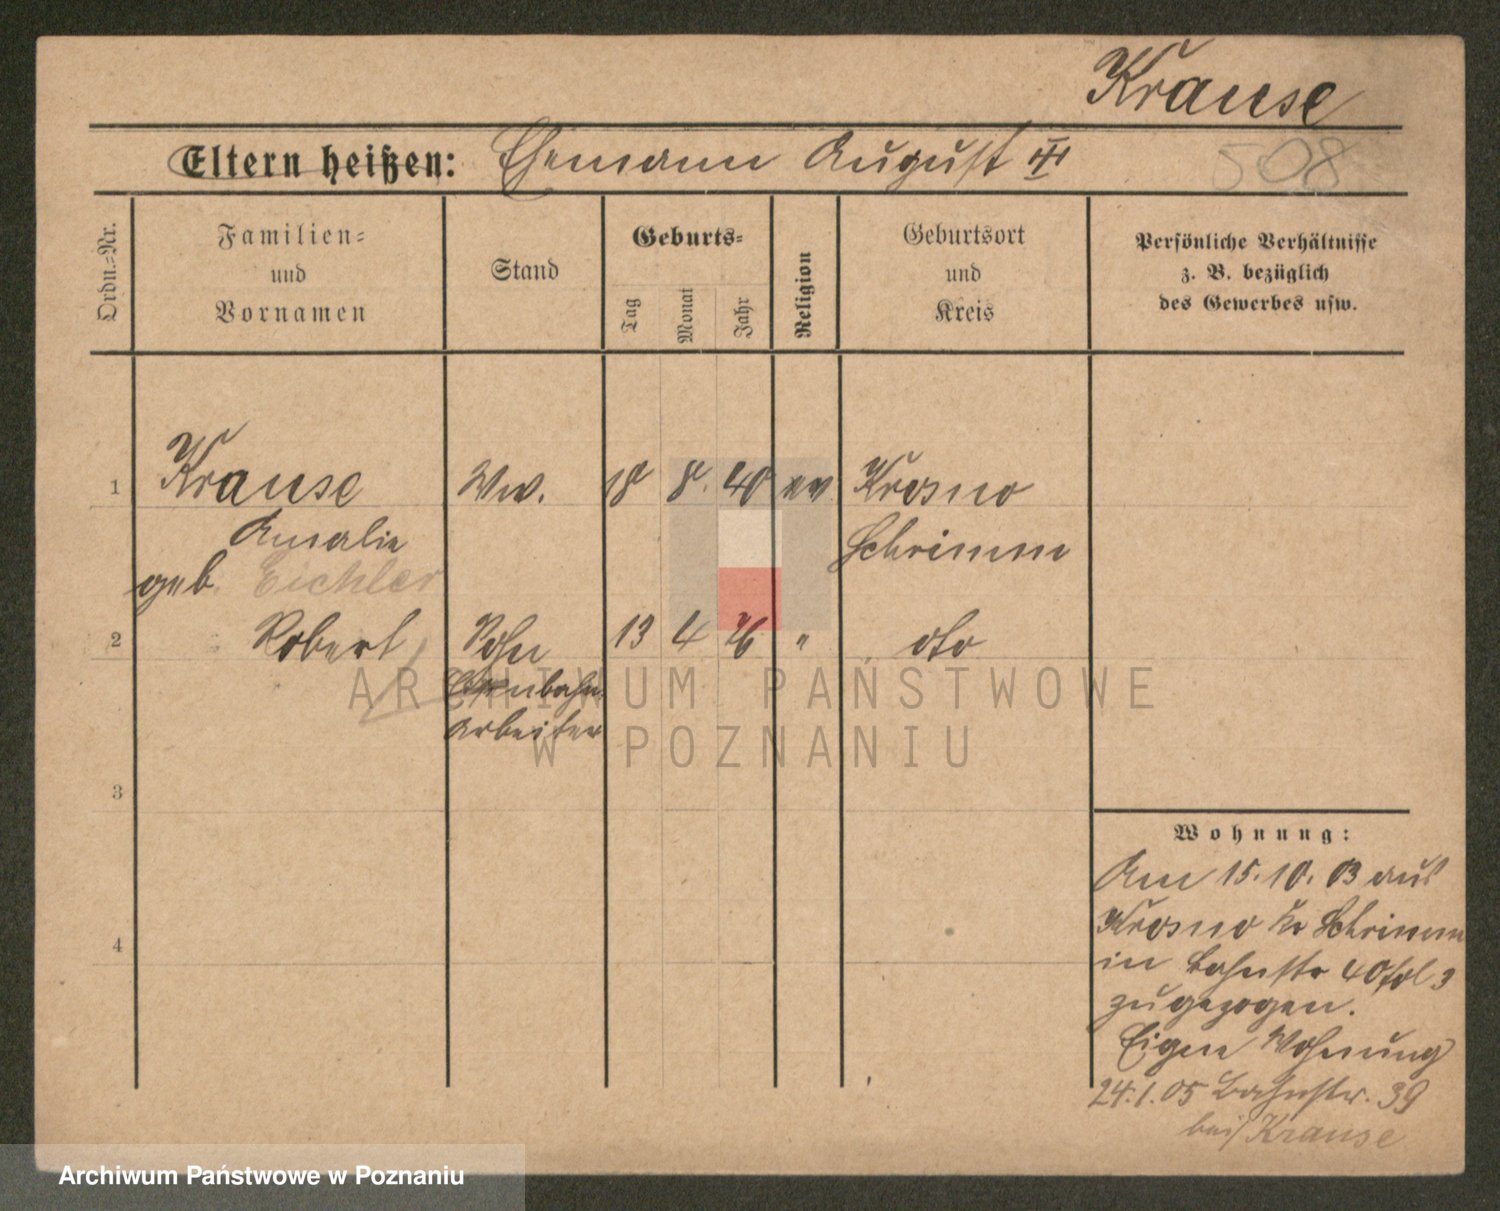 Krause
Eltern heißen: Ehemann August III
508
Ordn.-Nr.
Familien-
und
Vornamen
Stand
Geburts-
Tag
Monat
Jahr
Religion
Geburtsort
und
Kreis
Persönliche Verhältnisse
z. B. bezüglich
des Gewerbes usw.
1 Krause Ww. 18 8. 40 ev Krosno
Amalie Schrimm
geb. Eichler
2 Robert Sohn 13 4 76 " dto
Eisenbahn
Arbeiter
ARCHIWUM PAŃSTWOWE
W POZNANIU
3
4
Wohnung:
Am 15.10.03 aus
Krosno Kr Schrimm
in Bahnstr 40 3
zugezogen.
Eigene Wohnung
24.1.05 Bahnstr. 39
bei Krause
Archiwum Państwowe w Poznaniu